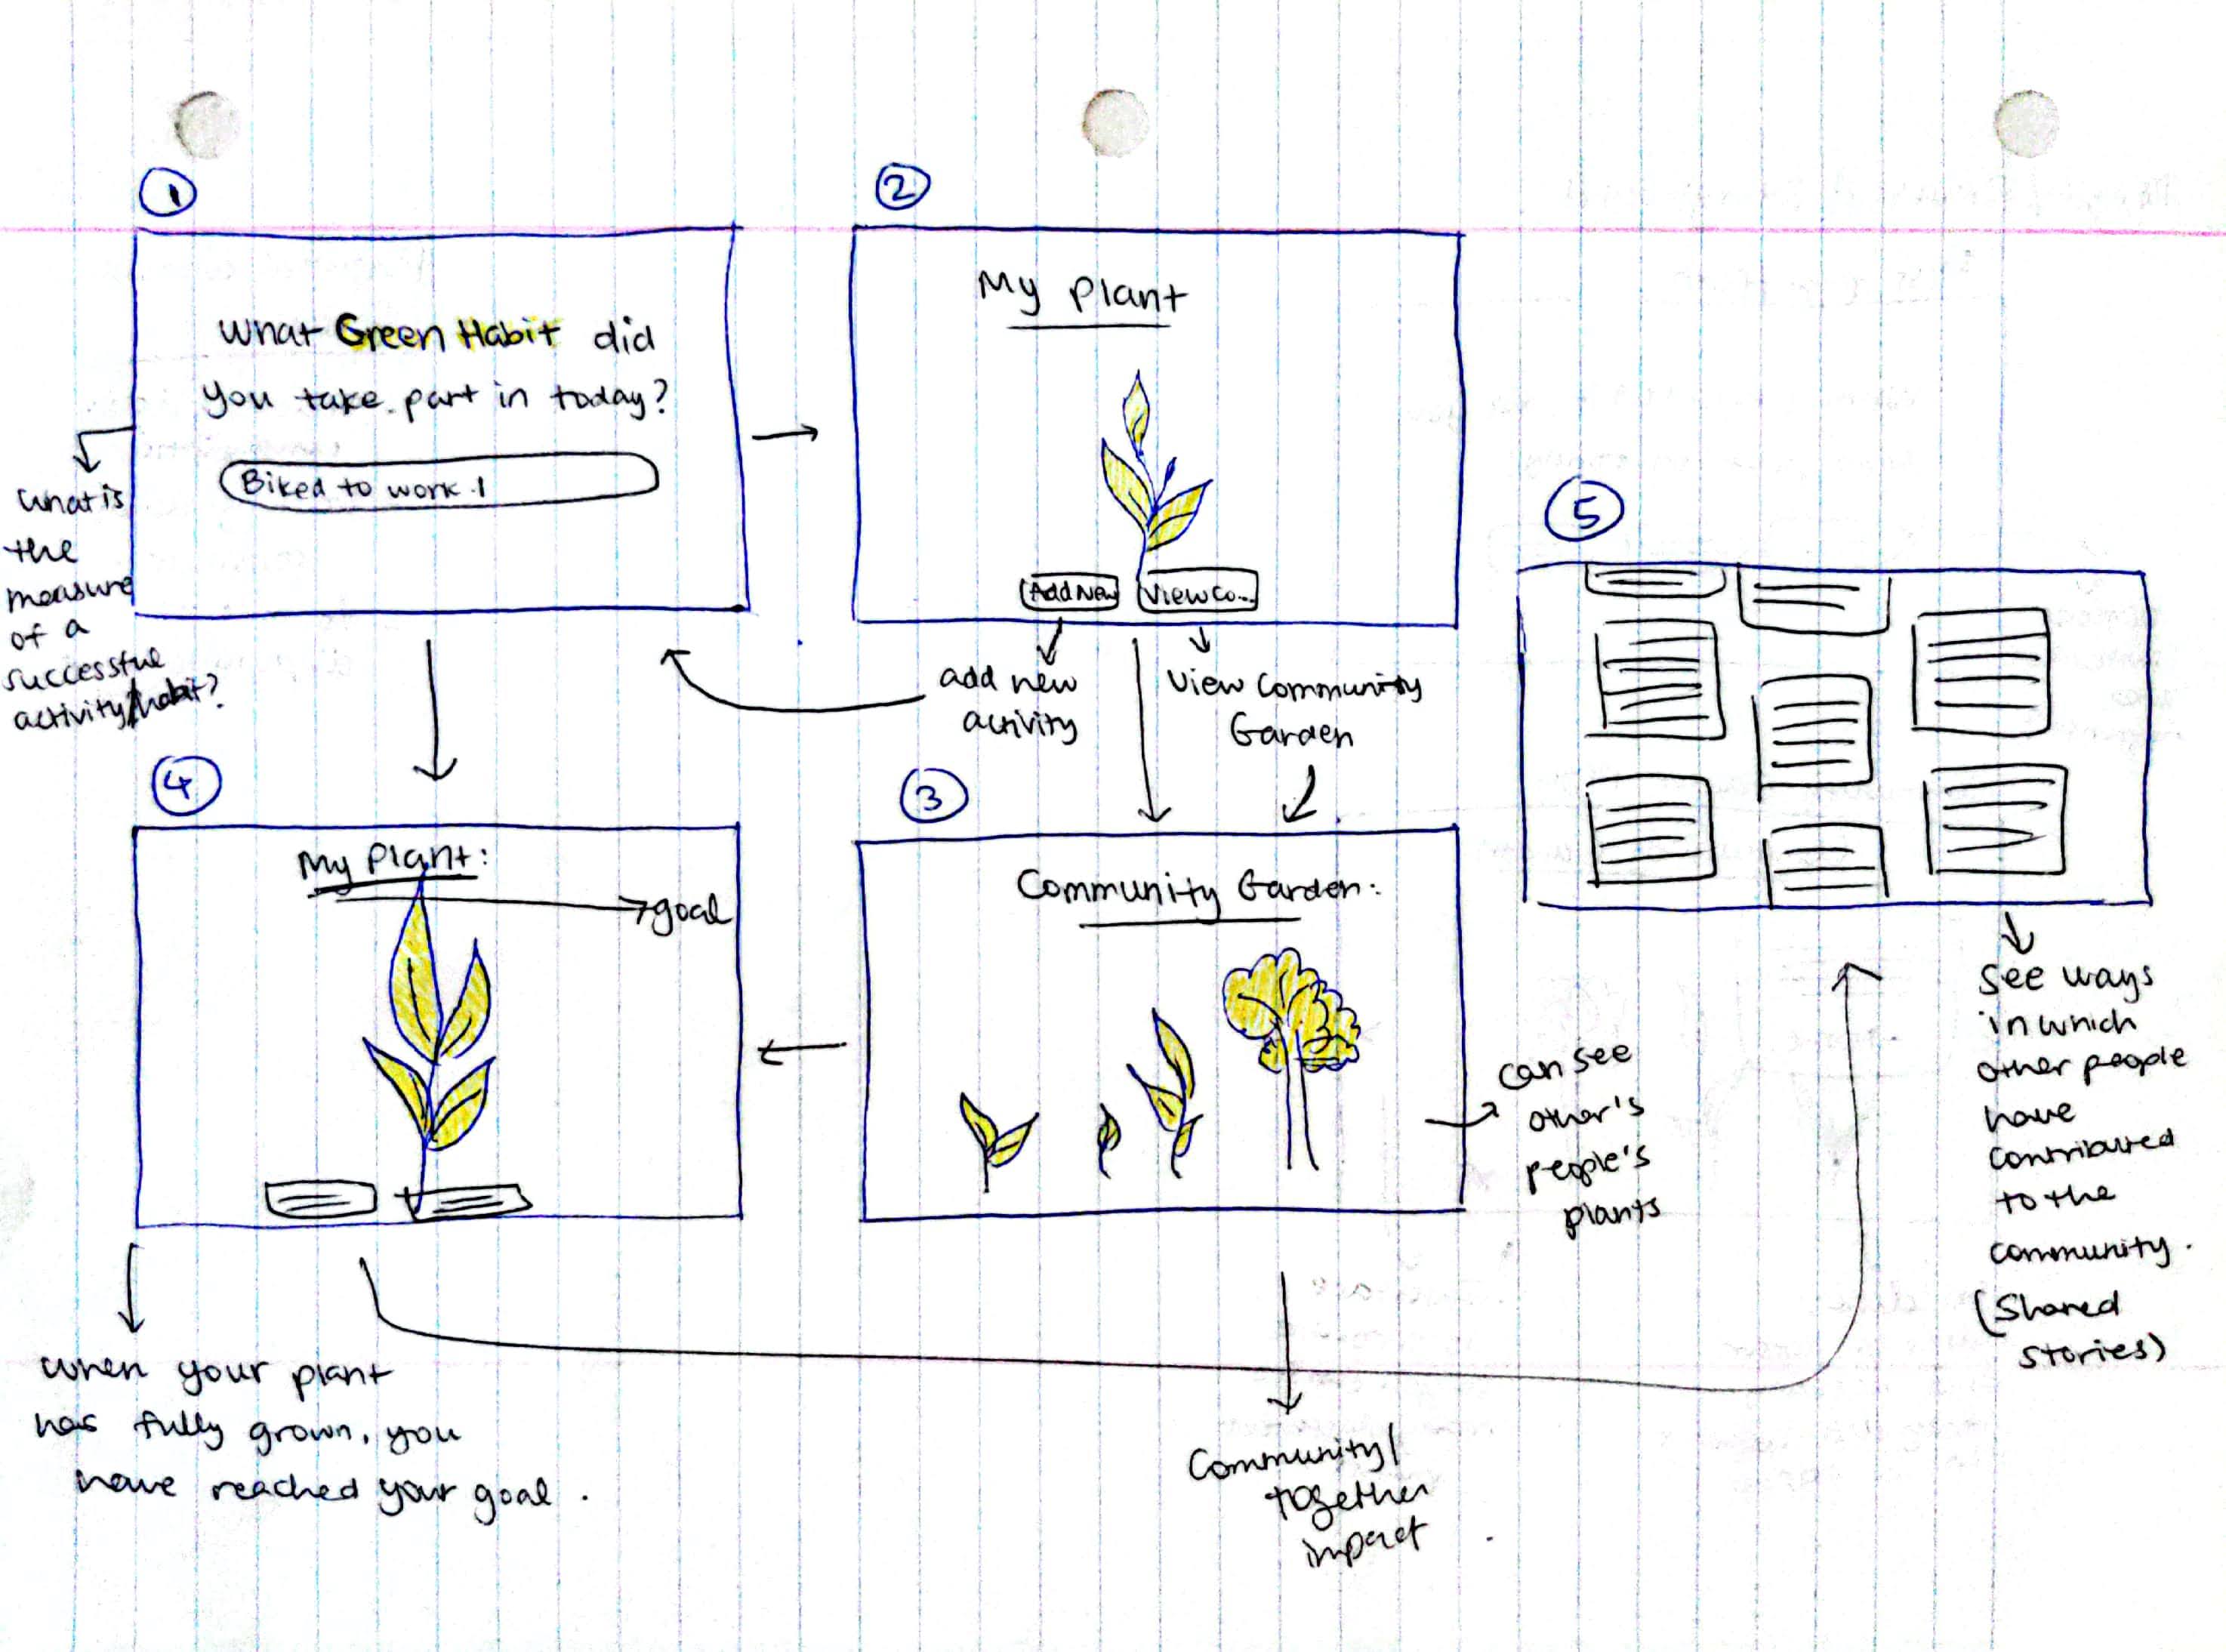 1
What Green Habit did
you take part in today?
Biked to work.
what is
the
measure
of a
successful
activity/habit?
2
My Plant
Add New
View Co...
add new
activity
View Community
Garden
3
Community Garden:
can see
other's
people's
plants
Community/
together
impact
4
My Plant:
goal
when your plant
has fully grown, you
have reached your goal.
5
see ways
in which
other people
have
contributed
to the
community.
(Shared
stories)